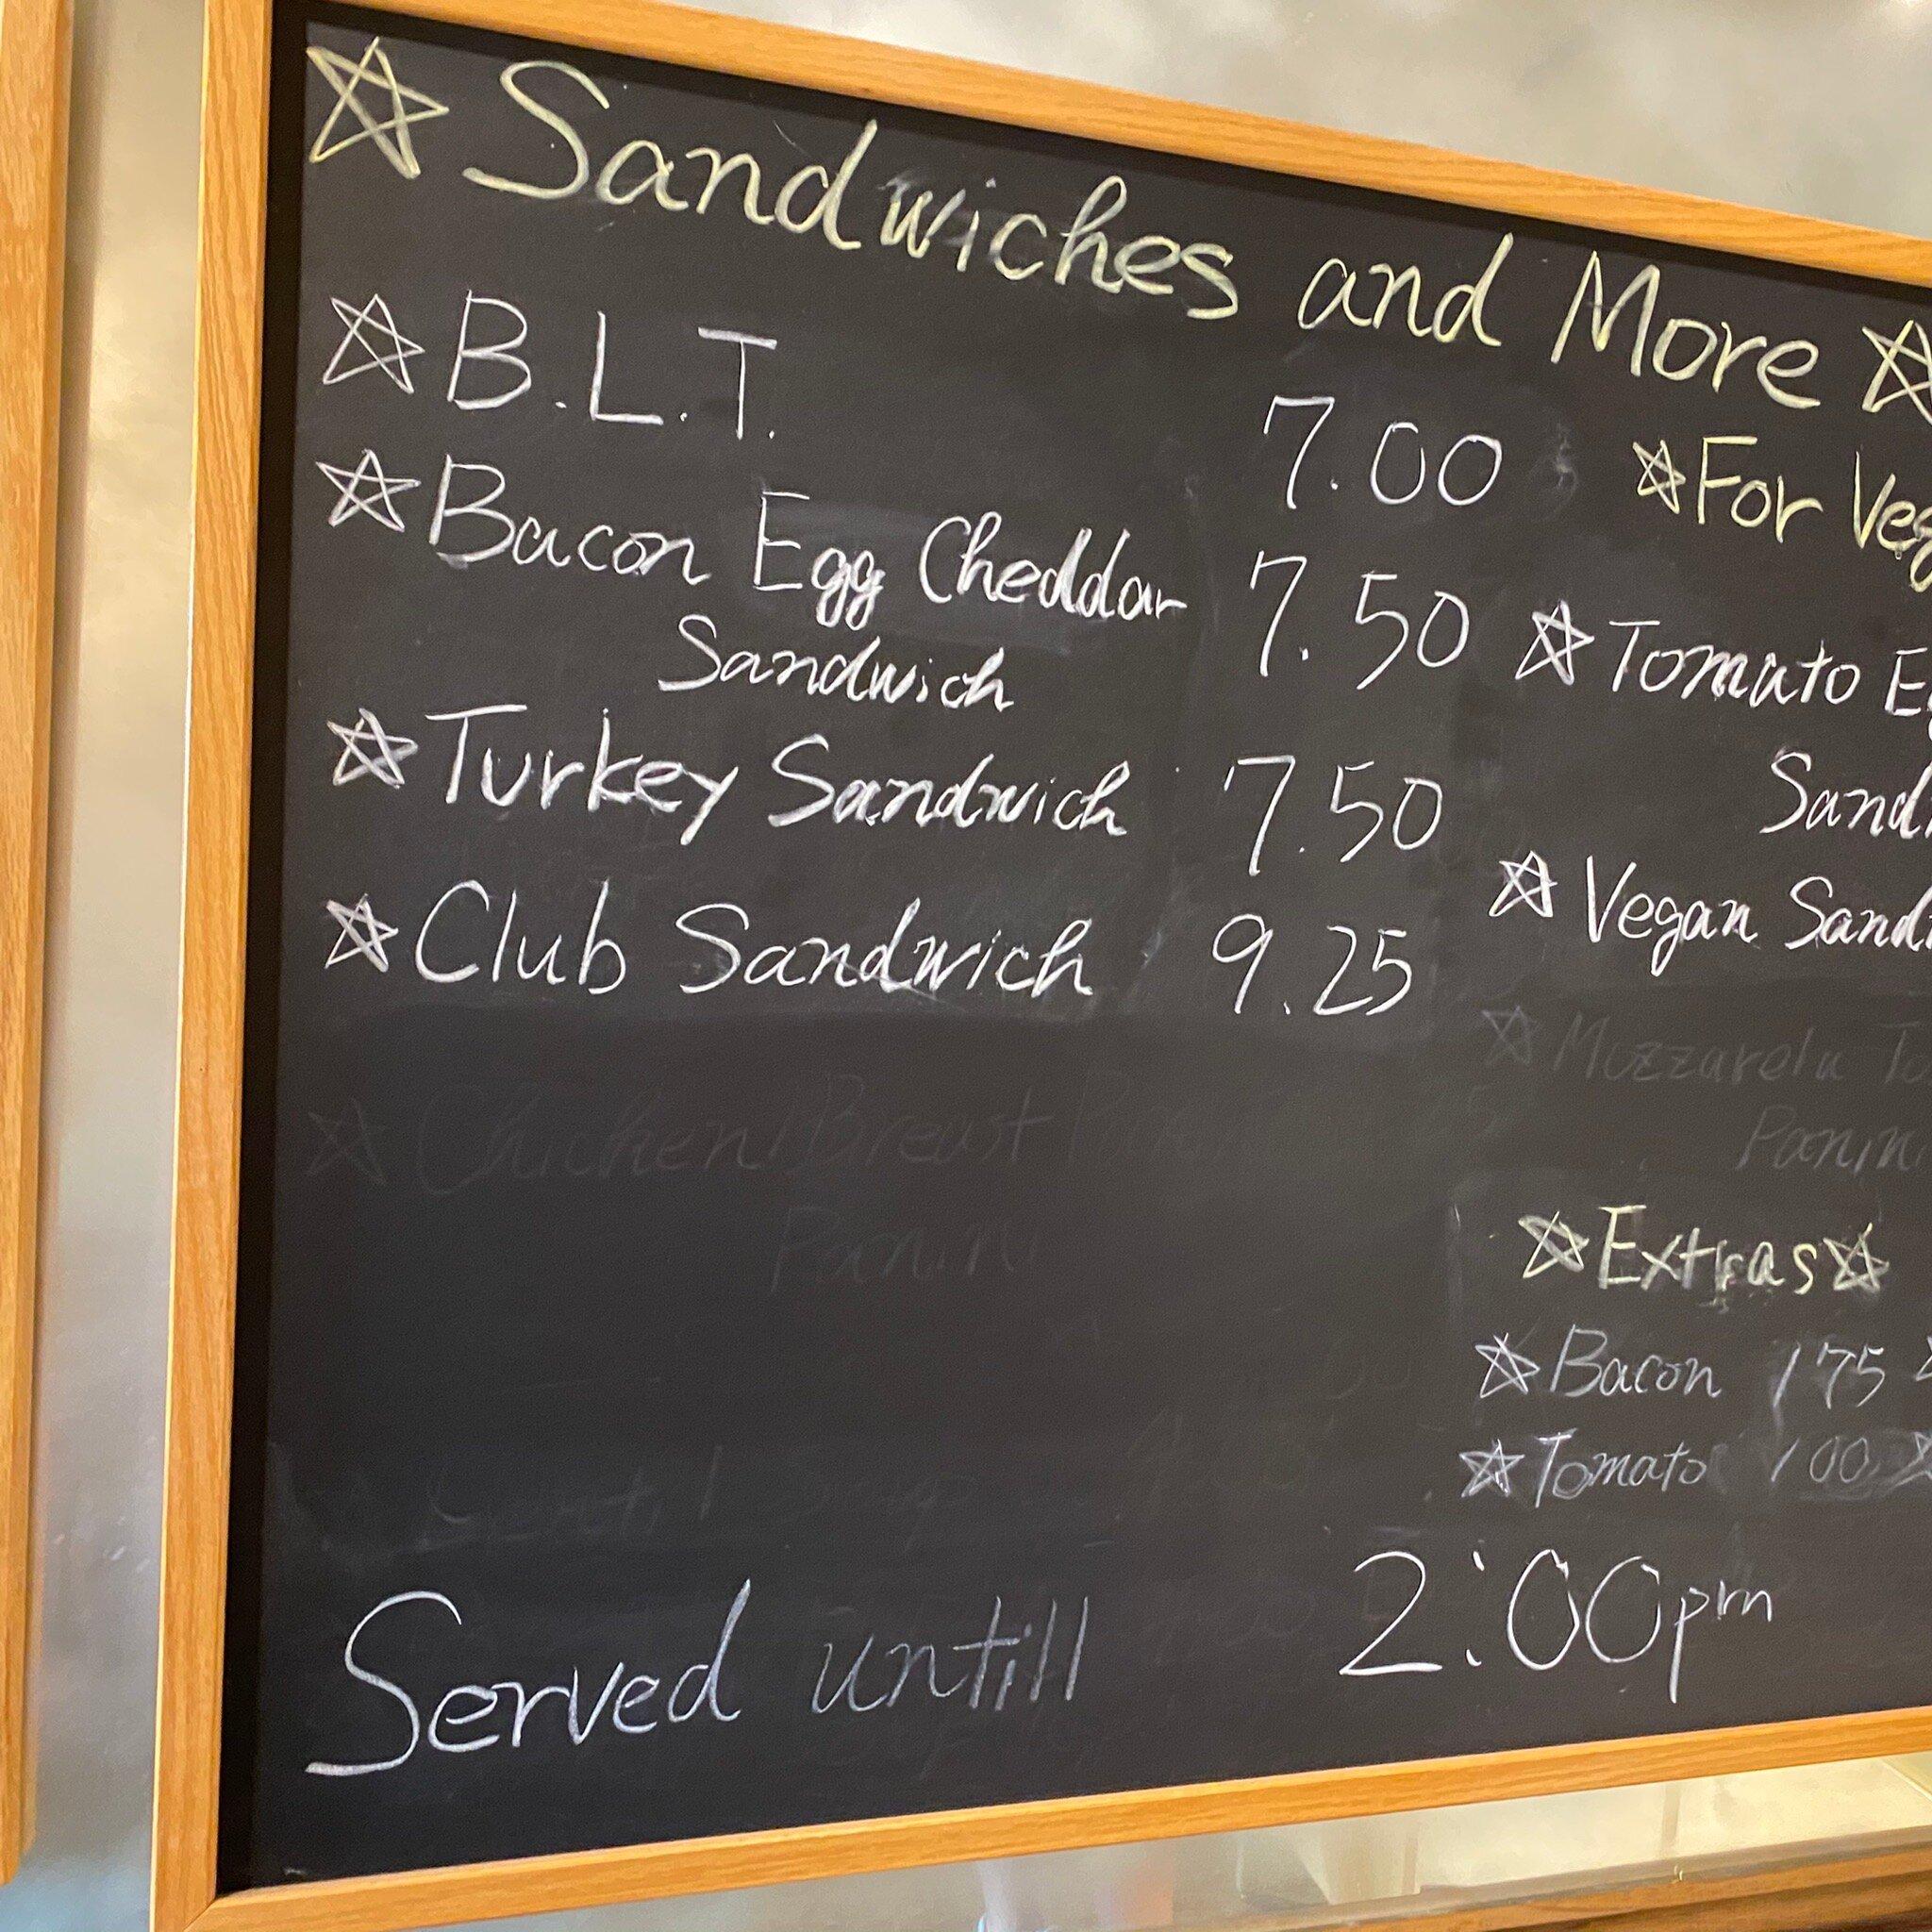 ☆ Sandwiches and More ☆
☆ B.L.T. 7.00
☆ Bacon Egg Cheddar 7.50
Sandwich
☆ Turkey Sandwich 7.50
☆ Club Sandwich 9.25
☆ Chicken Breast
Panini
Served untill 2:00pm
☆ For Veg
☆ Tomato Eg
Sand
☆ Vegan Sand
☆ Mozzarela To
Panini
☆ Extras ☆
☆ Bacon 1 75
☆ Tomato 1 00